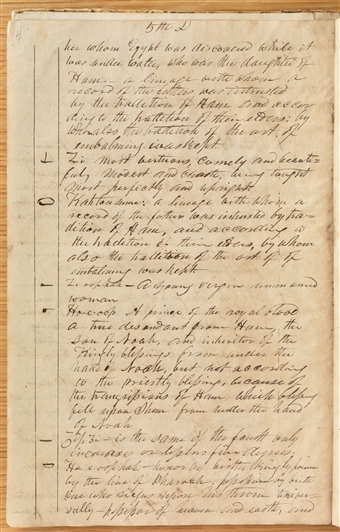 5th D
her whom Egypt was discovered while it
was under water, who was the daughter of
Ham. a lineage with whom a
record of the fathers was intrusted
by the tradition of Ham and accor
ding to the tradition of their elders; by
whom also the tradition of the art of
embalming was kept
Zi most virtious, comely and beauti-
ful, modest and chaste, being taught
most perfectly and upright.
a lineage with whom a
record of the fathers was intrusted by tra-
dition of Ham, and according to
the tradition of their elders, by whom
also the tradition of the art of
embalming was kept
A young virgin unmarried
woman
A prince of the royal blood
a true descendant from Ham, the
son of Noah, and inheritor of the
Kingly blessings from under the
hand of Noah, but not according
to the priestly blessing, because of
the transgressions of Ham, which blessing
fell upon Shem from under the hand
of Noah
is the same as the fourth only
increase or
honor by birth kingly power
by the line of Pharaoh, possession by birth
one who reigns upon his throne univer-
sally — possessor of heaven and earth, and